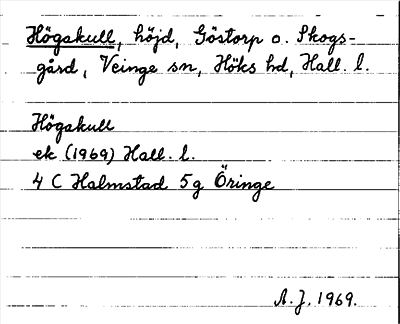 Högakull, höjd, Göstorp o. Skogs-
gård, Veinge sn, Höks hd, Hall. l.
Högakull
ek (1969) Hall. l.
4 C Halmstad 5g Öringe
A.J. 1969.